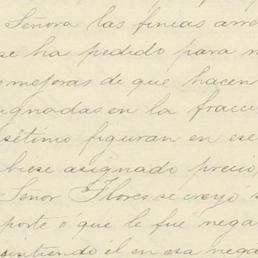 Señora las fincas arre
se ha pedido para n
mejoras de que hacen
ignadas en la fracc
sétimo figuran en ese
biese asignado precio,
Señor Flores se creyó s
porte ó que le fué nega
sintiendo él en esa nega